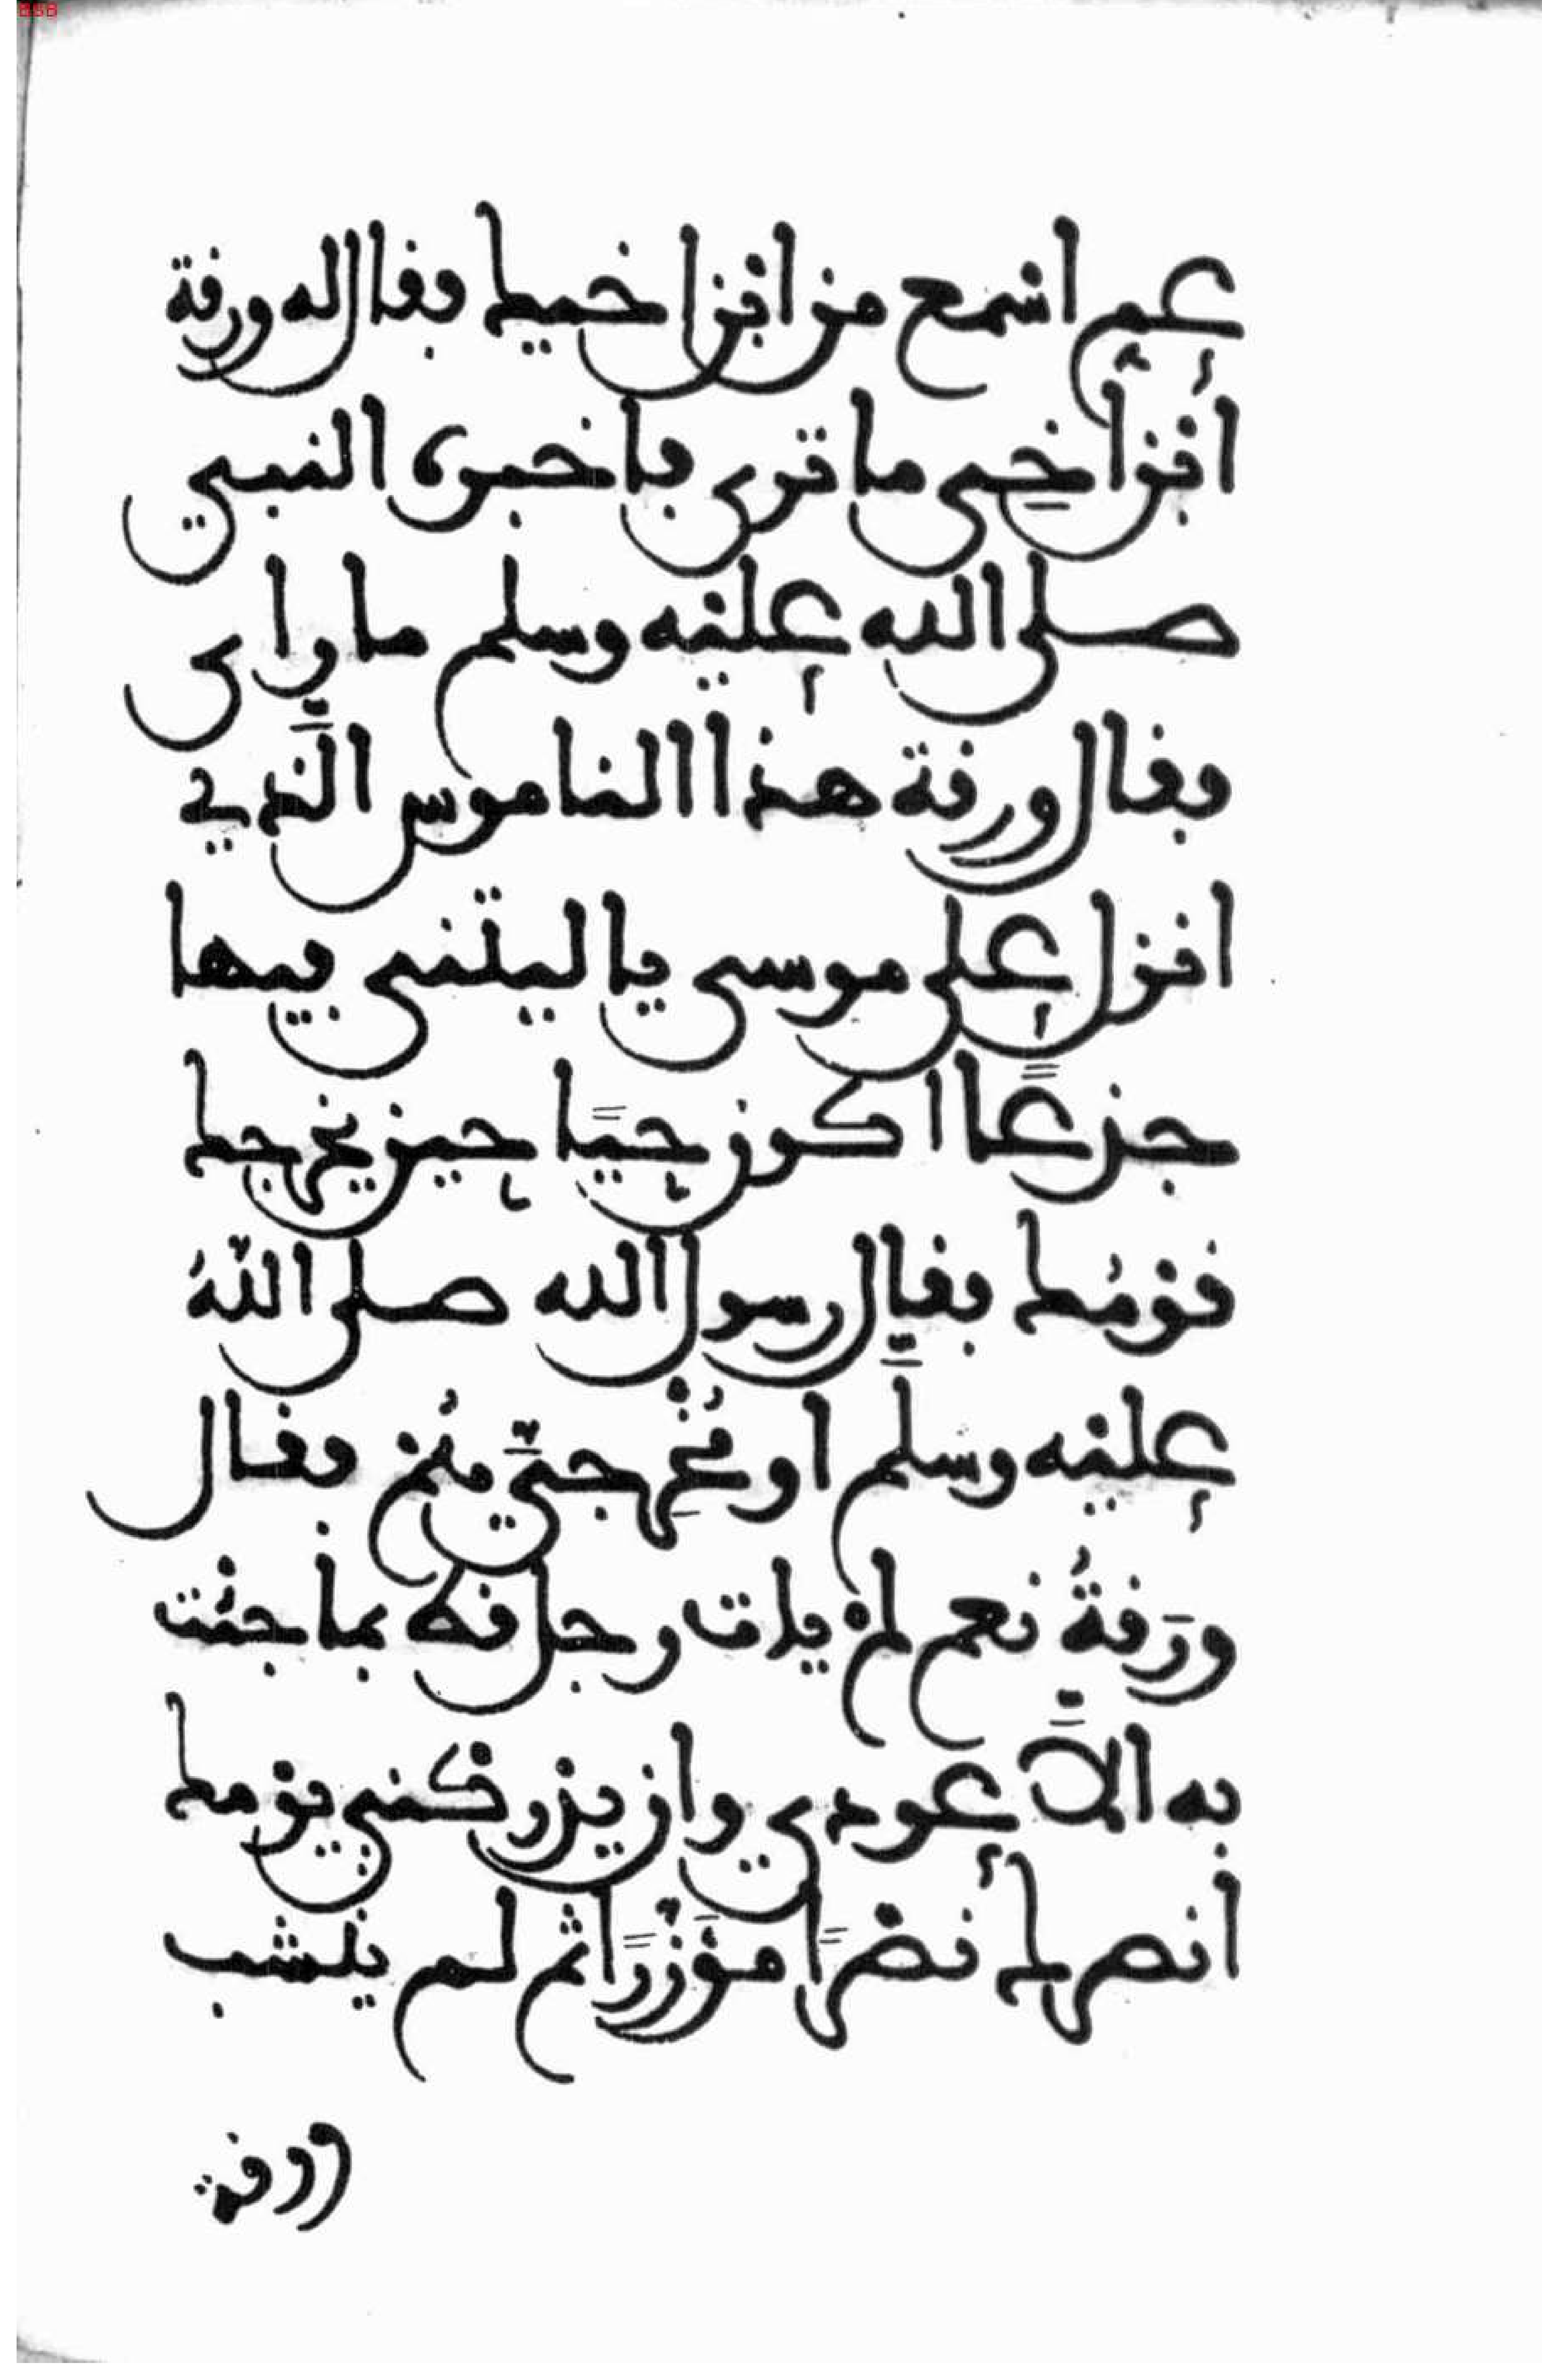 858
عم اسمع من ابن اخيك فقال له ورقة
ابن اخي ما ترى فاخبره النبي
صلى الله عليه وسلم ما راى
فقال ورقة هذا الناموس الذي
انزل على موسى يا ليتني فيها
جذعًا اكون حيًا حين يخرجك
قومُك فقال رسول الله صلى اللهُ
عليه وسلم او مُخْرِجيَّ هُم فقال
ورَقةُ نعم لمْ يات رجل قط بما جئت
به الاَّ عودي وان يدركني يومك
انصرك نصرًا مؤَزَّرًا ثم لم ينشب
ورقة